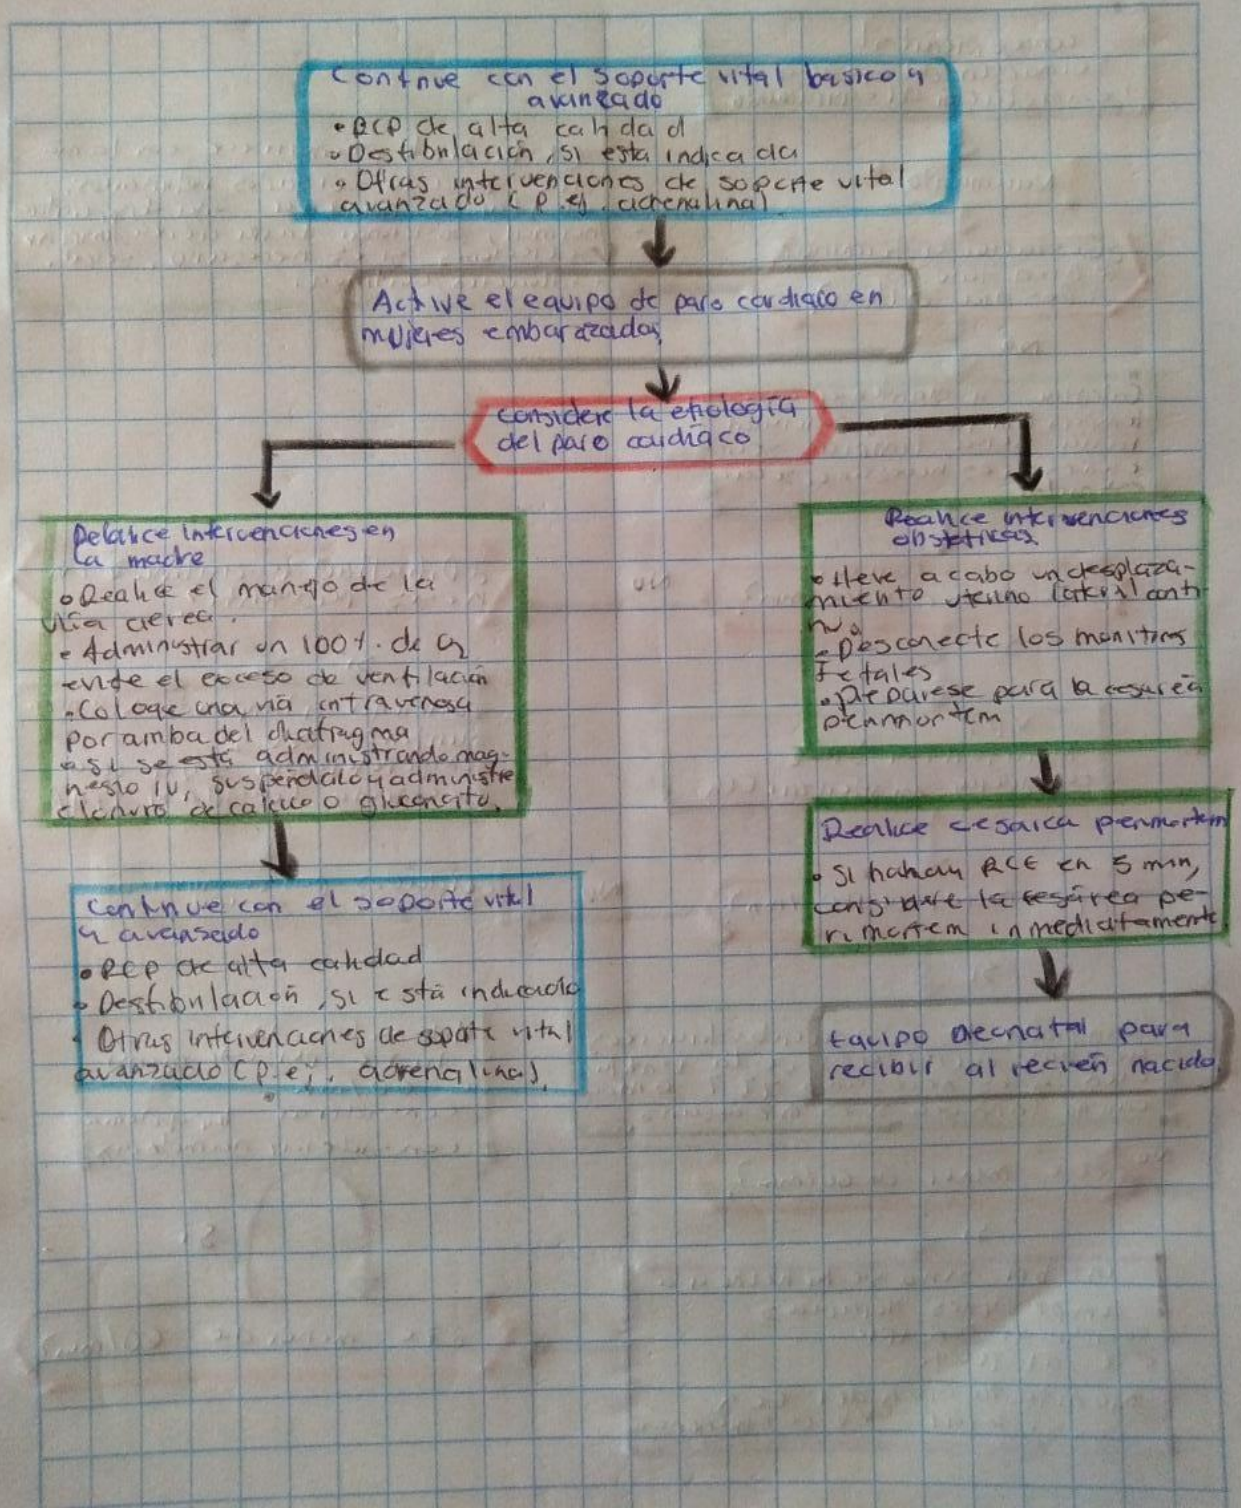 Continue con el soporte vital basico y
avanzado
• RCP de alta calidad
• Desfibrilación, si esta indicada
• Otras intervenciones de soporte vital
avanzado (p.ej. adrenalina)
Active el equipo de paro cardiaco en
mujeres embarazadas
Considere la etiología
del paro cardíaco
Realice intervenciones en
la madre
• Realice el manejo de la
vía aerea.
• Administrar un 100%. de
evite el exceso de ventilación
• Coloque una vía intravenosa
por arriba del diafragma
• si se está administrando mag-
nesio IV, suspendalo y administre
cloruro de calcico o gluconato.
Continue con el soporte vital
y avansado
• RCP de alta calidad
• Desfibrilación, si está indicada
• Otras intervenciones de soporte vital
avanzado (p.ej. adrenalina).
Realice intervenciones
obstetricas
• lleve a cabo un desplaza-
miento uterino lateral conti-
nuo
• Desconecte los monitores
fetales
• Preparese para la cesarea
perimortem
Realice cesarea perimortem
• Si RCE en 5 min,
considere la cesárea pe-
rimortem inmediatamente
Equipo neonatal para
recibir al recien nacido